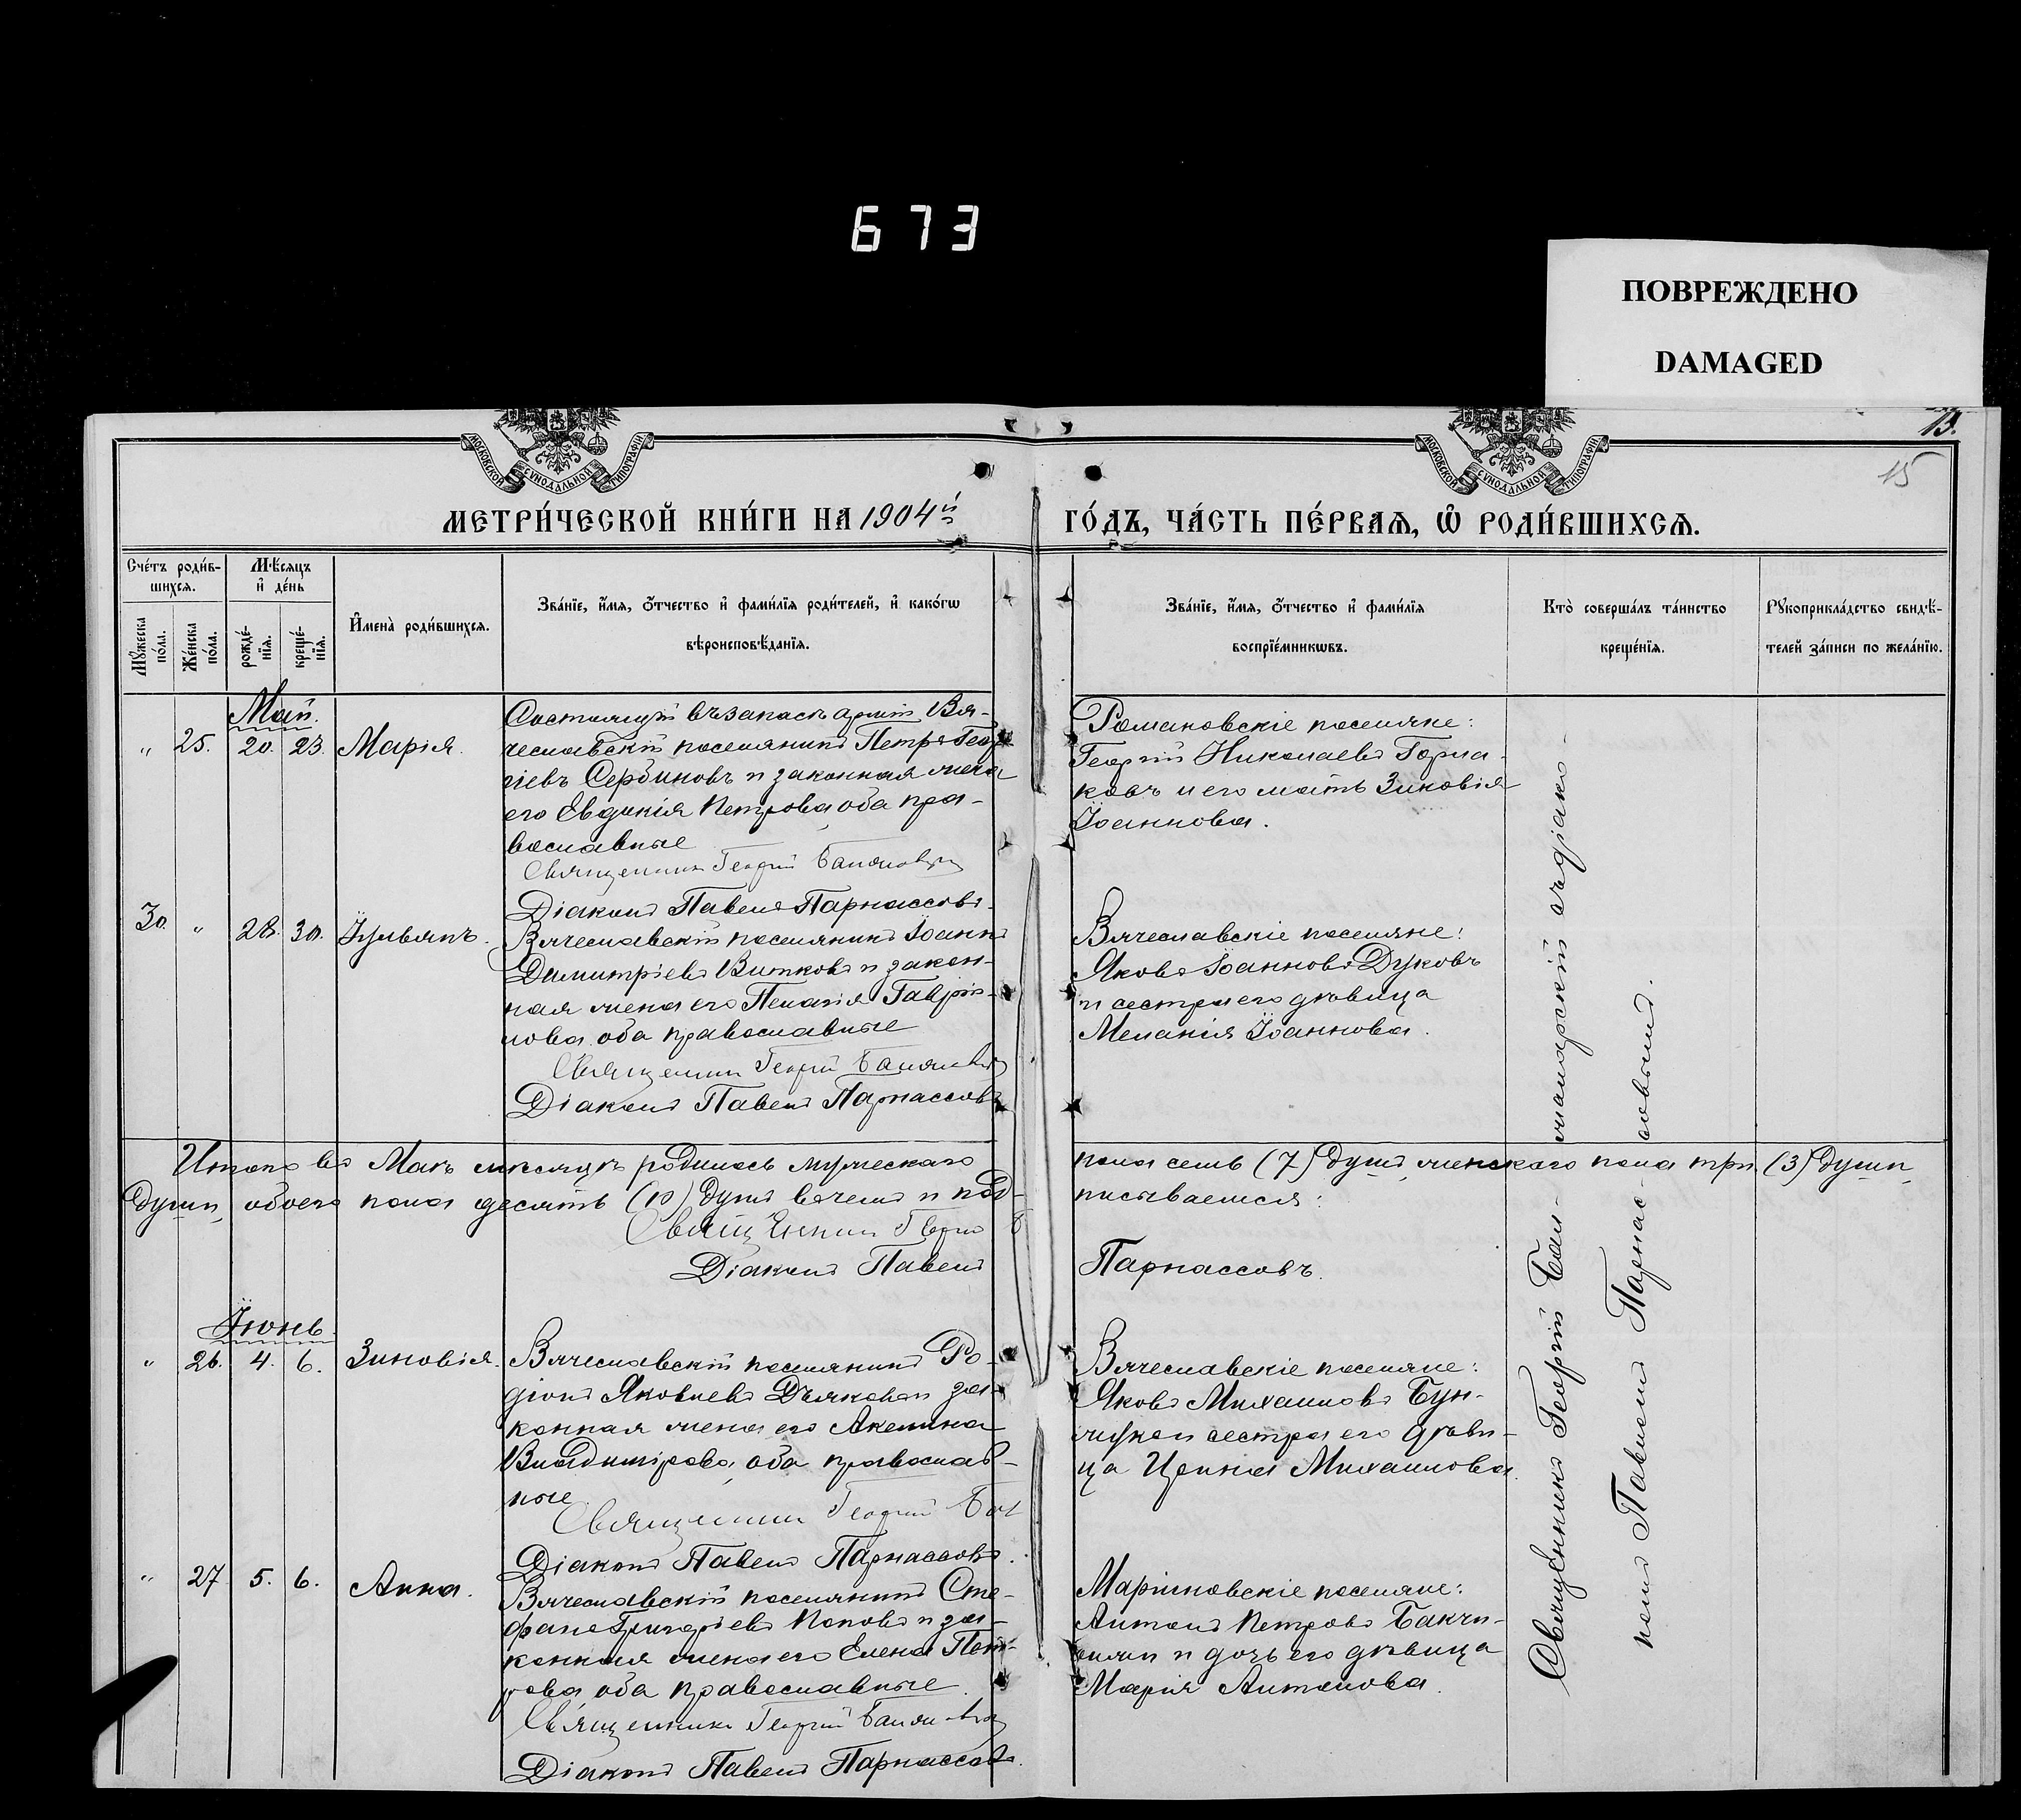 673
ПОВРЕЖДЕНО
DAMAGED
13.
15
МОСКОВСКОЙ СѴНОДАЛЬНОЙ ТИПОГРАФІИ
МОСКОВСКОЙ СѴНОДАЛЬНОЙ ТИПОГРАФІИ
МЕТРИ́ЧЕСКОЙ КНИ́ГИ НА 1904й
ГО́ДЪ, ЧА́СТЬ ПЕ́РВАѦ, Ѽ РОДИ́ВШИХСѦ.
Сче́тъ роди́в-
шихсѧ.
Мꙋ́жеска по́ла.
Же́нска по́ла.
Мѣ́сяцъ
и҆ де́нь
рожде́-
нїѧ.
креще́-
нїѧ.
И҆мена̀ роди́вшихсѧ.
Зва́нїе, и҆́мѧ, ѻ҆́тчество и҆ фами́лїѧ роди́телей, и҆ како́гѡ
вѣроисповѣ́данїѧ.
Зва́нїе, и҆́мѧ, ѻ҆́тчество и҆ фами́лїѧ
воспрїе́мникѡвъ.
Кто̀ соверша́лъ та́инство
креще́нїѧ.
Рꙋкоприкла́дство свидѣ́-
телей за́писи по жела́нїю.
Май.
„ 25. 20. 23. Марія.
Состоящій въ запасѣ арміи Вя-
чеславскій поселянинъ Петръ Геор
гіевъ Сербиновъ и законная жена
его Евдокія Петрова оба пра-
вославные
Священникъ Георгій
Діаконъ Павелъ Парнассовъ.
Романовскіе поселяне:
Георгій Николаевъ Горма-
ковъ и его мать Зиновія
Іоаннова.
30. „ 28. 30. Іульянъ.
Вячеславскій поселянинъ Іоаннъ
Димитріевъ Витковъ и закон-
ная жена его Пелагія Гаврі-
лова оба православные
Священникъ Георгій
Діаконъ Павелъ Парнассовъ
Вячеславскіе поселяне:
Яковъ Іоанновъ Дуковъ
и сестра его дѣвица
Меланія Іоаннова.
Итого въ Маѣ мѣсяцѣ родилось мужескаго пола семь (7) душъ, женскаго пола три (3) души,
души, обоего пола десять (10) душъ вчемъ и под-
писываемся:
Священникъ Георгій
Діаконъ Павелъ Парнассовъ.
Іюнь.
„ 26. 4. 6. Зиновія.
Вячеславскій поселянинъ Ро-
діонъ Яковлевъ Дьяковъ и за-
конная жена его Акелина
Владимірова, оба православ-
ные.
Священникъ Георгій
Діаконъ Павелъ Парнассовъ.
Вячеславскіе поселяне:
Яковъ Михаиловъ Бун-
жукъ и сестра его дѣви-
ца Ирина Михаилова.
„ 27. 5. 6. Анна.
Вячеславскій поселянинъ Сте-
фанъ Григоріевъ Поповъ и за-
конная жена его Елена Пет-
рова оба православные.
Священникъ Георгій
Діаконъ Павелъ Парнассовъ.
Маріиновскіе поселяне:
Антонъ Петровъ
и дочь его дѣвица
Марія Антонова.
Священникъ Георгій съ діако-
номъ Павломъ Парнас-
совымъ.